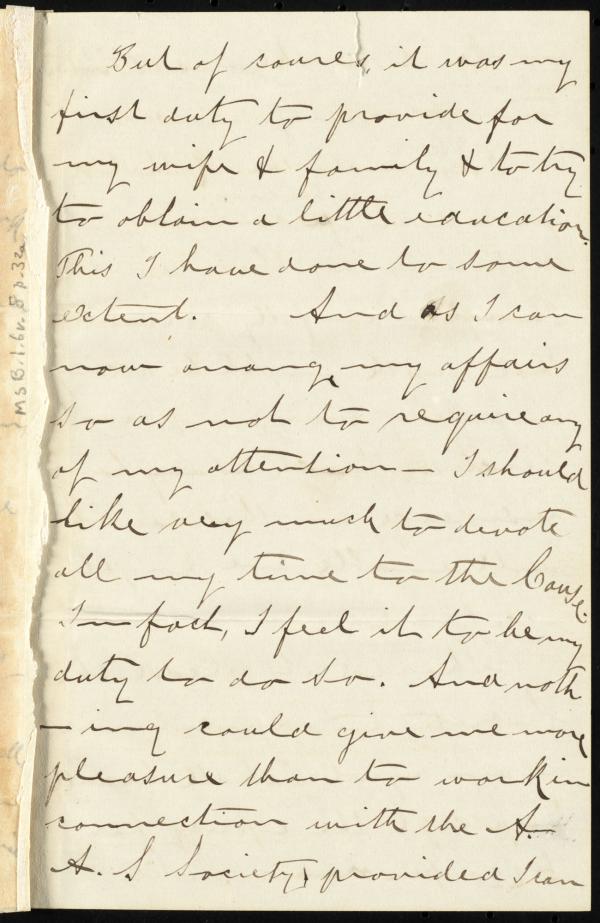 But of course, it was my
first duty to provide for
my wife & family & to try
to obtain a little education.
This I have done to some
extent. And as I can
now arrang my affairs
so as not to require any
of my attention — I should
like very much to devote
all my time to the Cause.
In fact, I feel it to be my
duty to do so. And noth
- ing could give me more
pleasure than to work in
connection with the A.
A. S Society, provided I can
MS B.1.6 v.8 p.32a